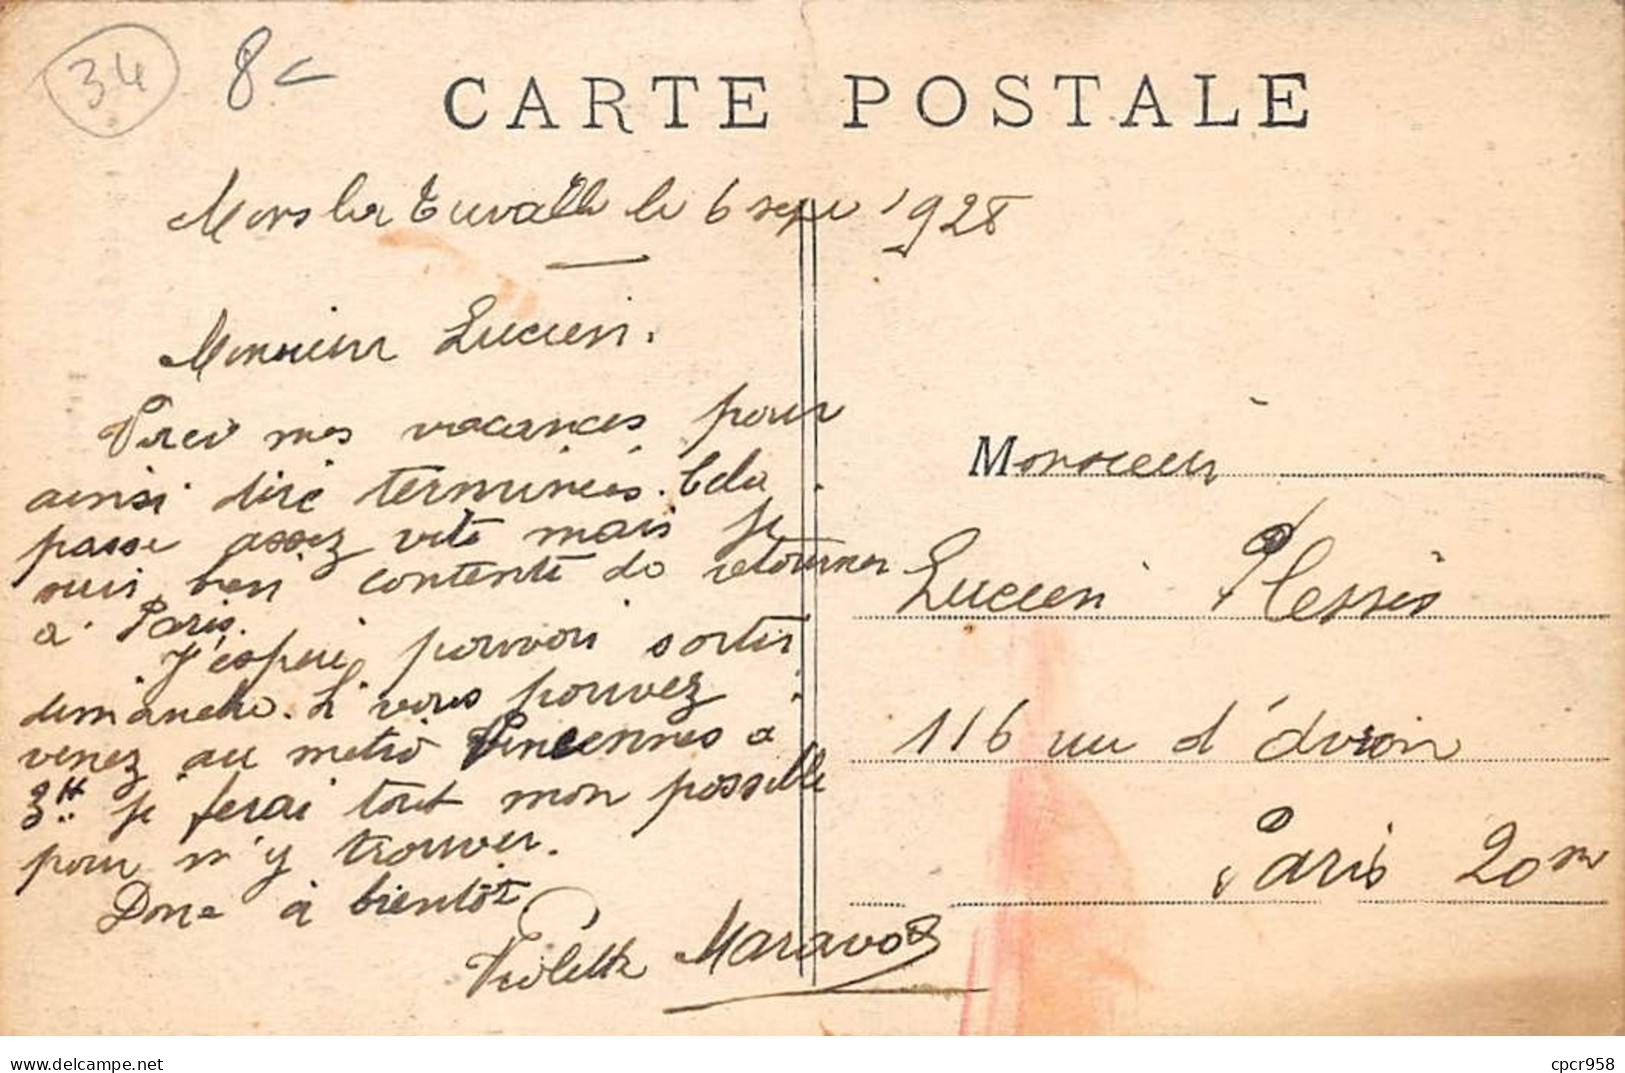 34
8
CARTE POSTALE
Mons la Trivalle le 6 sept 1928
Monsieur Lucien.
Voici mes vacances pour
ainsi dire terminées. Cela
passe assez vite mais je
suis bien contente de retourner
a Paris.
J'espère pouvoir sortir
dimanche. Si vous pouvez
venez au metro Vincennes a
3H je ferai tout mon possible
pour m'y trouver.
Donc à bientôt
Violette Maraval
Monsieur
Lucien Plessis
116 rue d'Avron
Paris 20m
delcampe.net
cpcr958